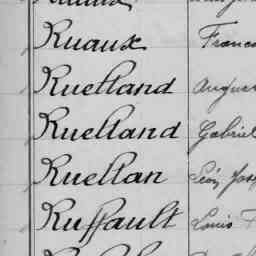 Ruaux
Ruelland Augus
Ruelland Gabriel
Ruellan Léon Jos
Ruffault Louis